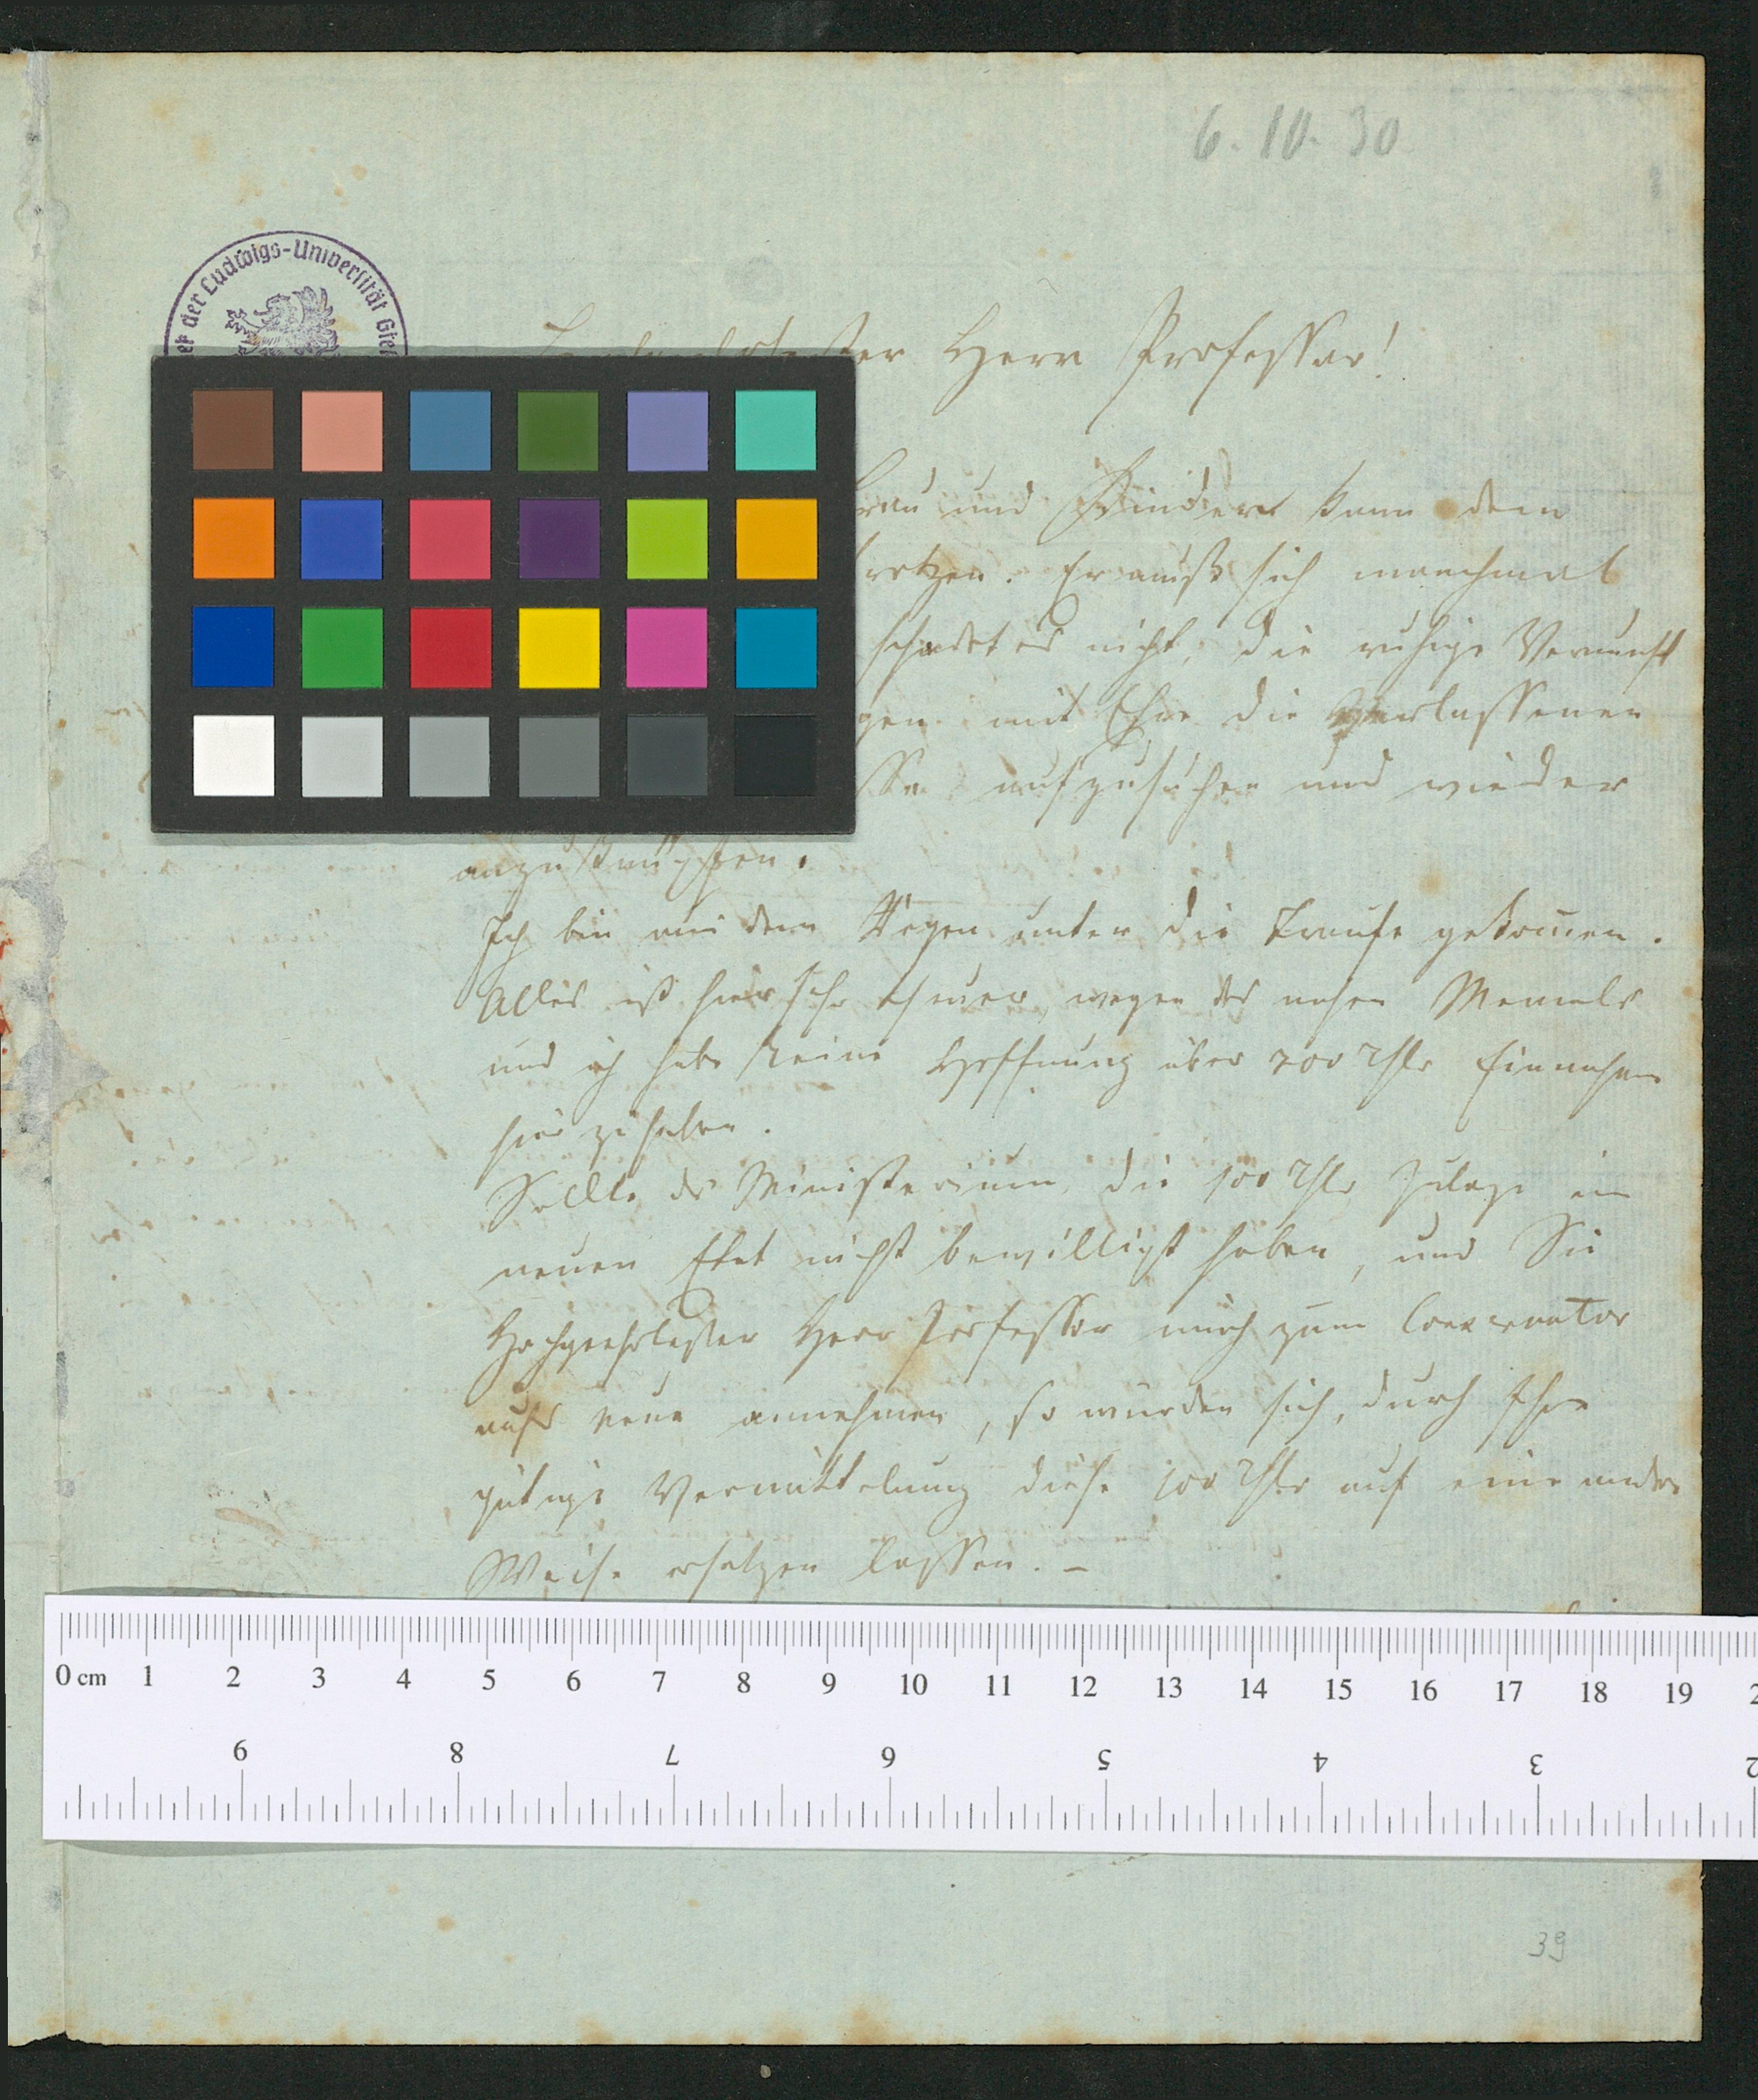 6. 10. 30
der Ludwigs-Universität Gie
Herr Professor!
und Kinder kann dem
Er muß sich manchmal
schadet es nicht, die ruhige Vernunft
gen mit Ehre die Verlassenen
aufzusuchen und wieder
anzuknüpfen.
Ich bin aus dem Regen unter die Traufe gekom̅en.
Alles ist hier sehr theuer wegen des nahen Memels
und ich habe keine Hoffnung über 200 Thlr Einnahme
hier zu haben.
Sollte das Ministerium die 100 Thlr Zulage im
neuen Etat nicht bewilligt haben, und Sie
Hochgeehrtester Herr Professor mich zum Conservator
aufs neue annehmen, so würden sich, durch Ihre
gütige Vermittelung diese 100 Thlr auf eine andre
Weise ersetzen lassen. –
0 cm 1 2 3 4 5 6 7 8 9 10 11 12 13 14 15 16 17 18 19 2
9 8 7 6 5 4 3 2
39